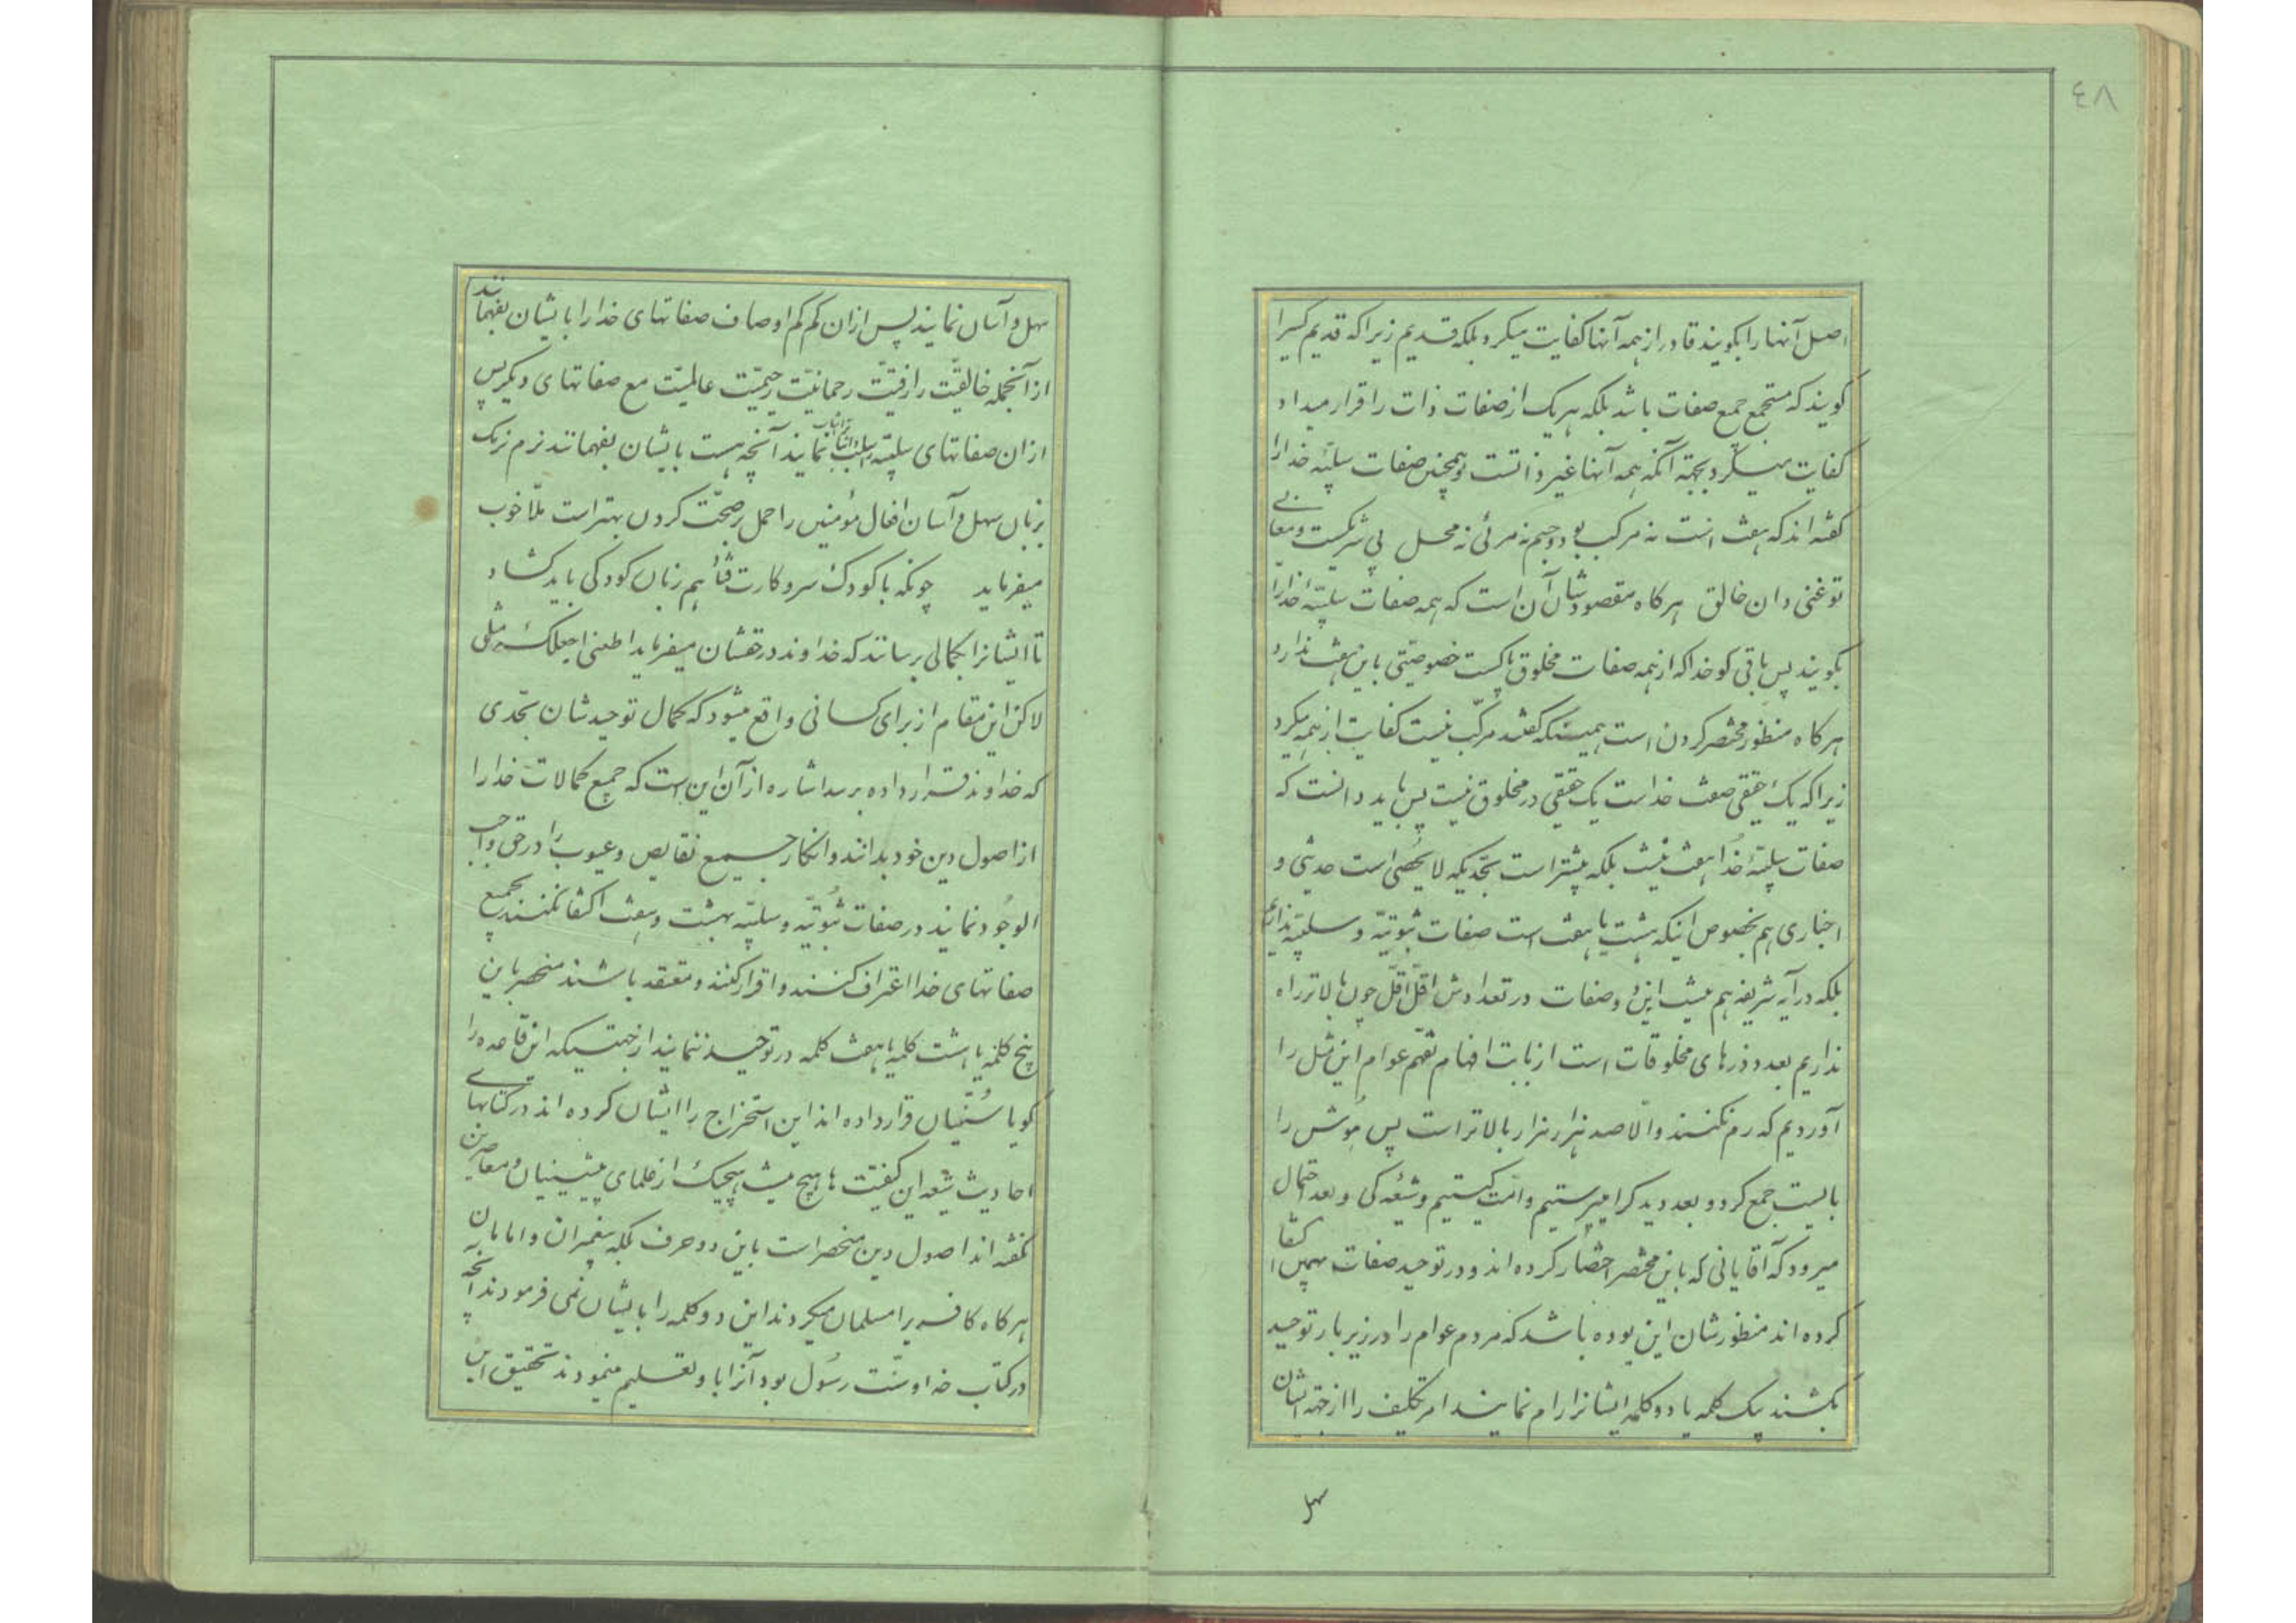 ٤٨
اصل آنها را بگویند قادر از همه آنها کفایت میکرد بلکه قدیم زیرا که قدیم کسیرا
گویند که مستجمع جمیع صفات باشد بلکه هر یک از صفات ذات را قرار میداد
کفایت میکرد بجهته آنکه همه آنها غیر ذاتست و همچنین صفات سلبیّه خدا را
گفته اند که هفت است نه مرکب بود و جسم نه مرئی نه محل بی شریکست و معانی
تو غنی دان خالق هر کاه مقصودشان آن است که همه صفات سلبیّه خدا را
بگویند پس باقی کو خدا که از همه صفات مخلوق پاکست خصوصیتی باین هفت ندارد
هر کاه منظور مختصر کردن است همینکه گفتند مرکّب نیست کفایت از همه میکرد
زیرا که یک حقیقی صفت خداست یک حقیقی در مخلوق نیست پس باید دانست که
صفات سلبیّه خدا هفت نیست بلکه بیشتر است بحدّیکه لا یحصی است حدیثی و
اخباری هم بخصوص اینکه هشت یا هفت است صفات ثبوتیّه و سلبیّه نداریم
بلکه در آیه شریفه هم نیست این وصفات در تعدادش اقلّ اقلّ چون بالاتر راه
نداریم بعدد ذرهای مخلوقات است از بابت افهام تفهّم عوام این مثل را
آوردیم که رم نکنند والّا صد هزار هزار بالاتر است پس هوش را
بایست جمع کرد و بعد دید کرا میپرستیم و امّت کیستیم و شیعه کی و بعد احتمال
میرود که آقایانی که باین مختصر اختصار کرده اند و در توحید صفات بهمین اکتفا
کرده اند منظورشان این بوده باشد که مردم عوام را در زیر بار توحید
بکشند بیک کلمه یا دو کلمه ایشانرا رام نمایند امر تکلیف را از جهته ایشان
سهل
سهل و آسان نمایند پس از ان کم کم اوصاف صفاتهای خدا را بایشان بفهمانند
از آنجمله خالقیّت رازقیّت رحمانیّت رحیمیّت عالمیّت مع صفاتهای دیگر پس
از ان صفاتهای سلبیّه نمایند آنچه هست بایشان بفهمانند نرم نرمک
بزبان سهل و آسان افعال مؤمنین را حمل بر صحّت کردن بهتر است ملّا خوب
میفرماید چونکه با کودک سروکارت فتاد هم زبان کودکی باید کشاد
تا ایشانرا بکمالی برسانند که خداوند در حقشان میفرماید اطعنی اجعلک مثلی
لاکن این مقام از برای کسانی واقع میشود که کمال توحیدشان بحّدی
که خداوند قرار داده برسد اشاره از آن این است که جمیع کمالات خدا را
از اصول دین خود بدانند و انکار جمیع نقایص و عیوب را در حق واجب
الوجود نمایند در صفات ثبوتیّه و سلبیّه بهشت و هفت اکتفا نکنند بجمیع
صفاتهای خدا اعتراف کنند و اقرار کنند و معتقد باشند منحصر باین
پنج کلمه یا هشت کلمه یا هفت کلمه در توحید ننمایند از جهتیکه این قاعده را
کویا سُنّیان قرار داده اند این استخراج را ایشان کرده اند در کتابهای
احادیث شیعه این کیفیت ها هیچ نیست هیچیک از علمای پیشینیان و معاصرین
نگفته اند اصول دین منحصر است باین دو حرف بلکه پیغمبران و امامان
هر کاه کافریرا مسلمان میکردند این دو کلمه را بایشان نمی فرمودند آنچه
در کتاب خدا و سنّت رسول بود آنرا باو تعلیم مینمودند تحقیق این